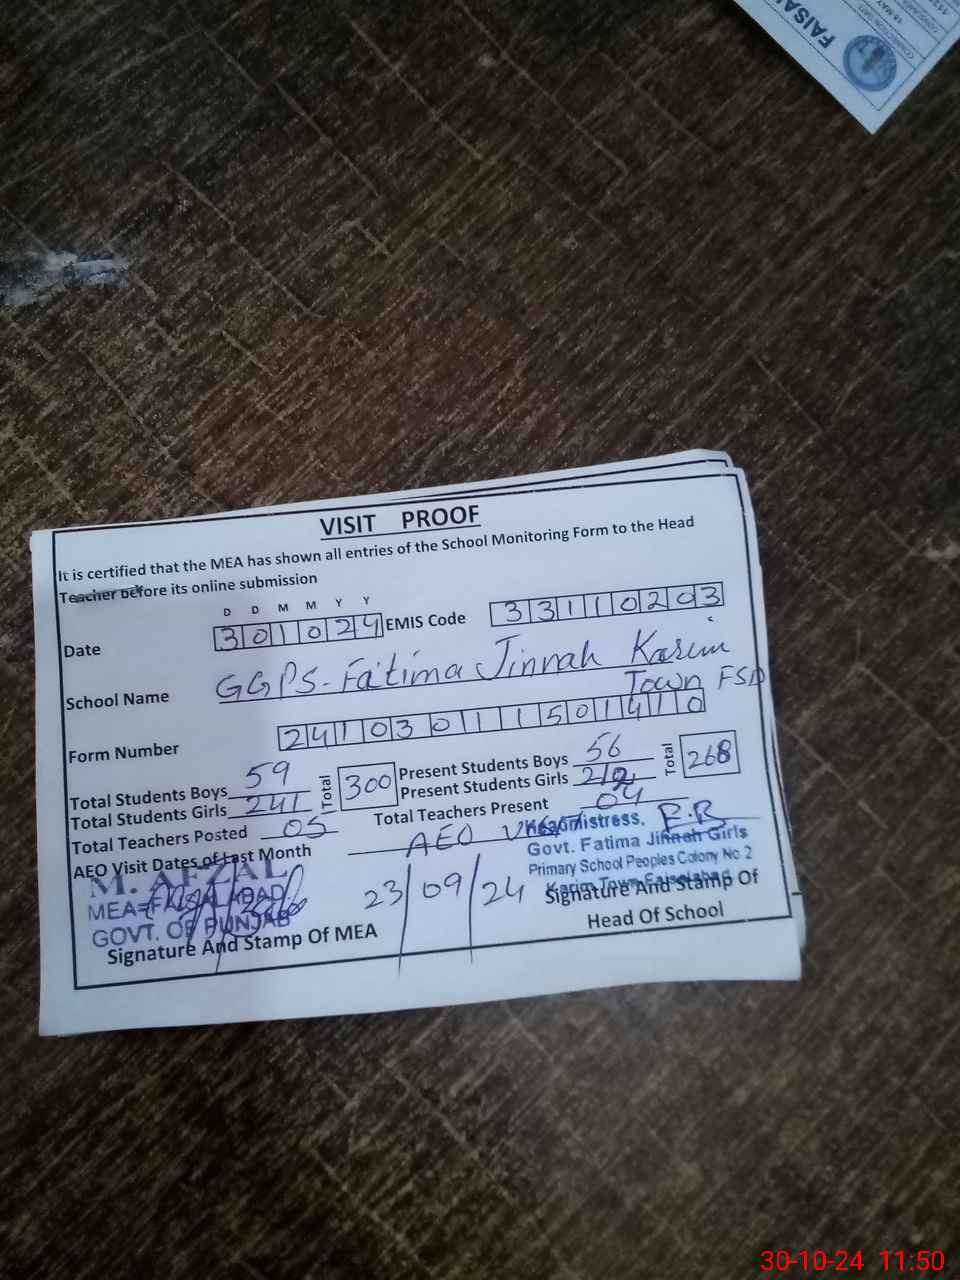 FAISAL
VISIT PROOF
It is certified that the MEA has shown all entries of the School Monitoring Form to the Head
Teacher before its online submission
D D M M Y Y
Date 301024 EMIS Code 33110203
School Name GGPS-Fatima Jinnah Karim
Town FSD
Form Number 241030111501410
Total Students Boys 59 Total 300 Present Students Boys 56 Total 268
Total Students Girls 241 Present Students Girls 212
Total Teachers Posted 05 Total Teachers Present 04
AEO Visit Dates of Last Month AEO
23/09/24
M. AFZAL
MEA-FAISALABAD
GOVT. OF PUNJAB
Signature And Stamp Of MEA
Headmistress.
Govt. Fatima Jinnah Girls
Primary School Peoples Colony No 2
Karim Town Faisalabad
Signature And Stamp Of
Head Of School
30-10-24 11:50